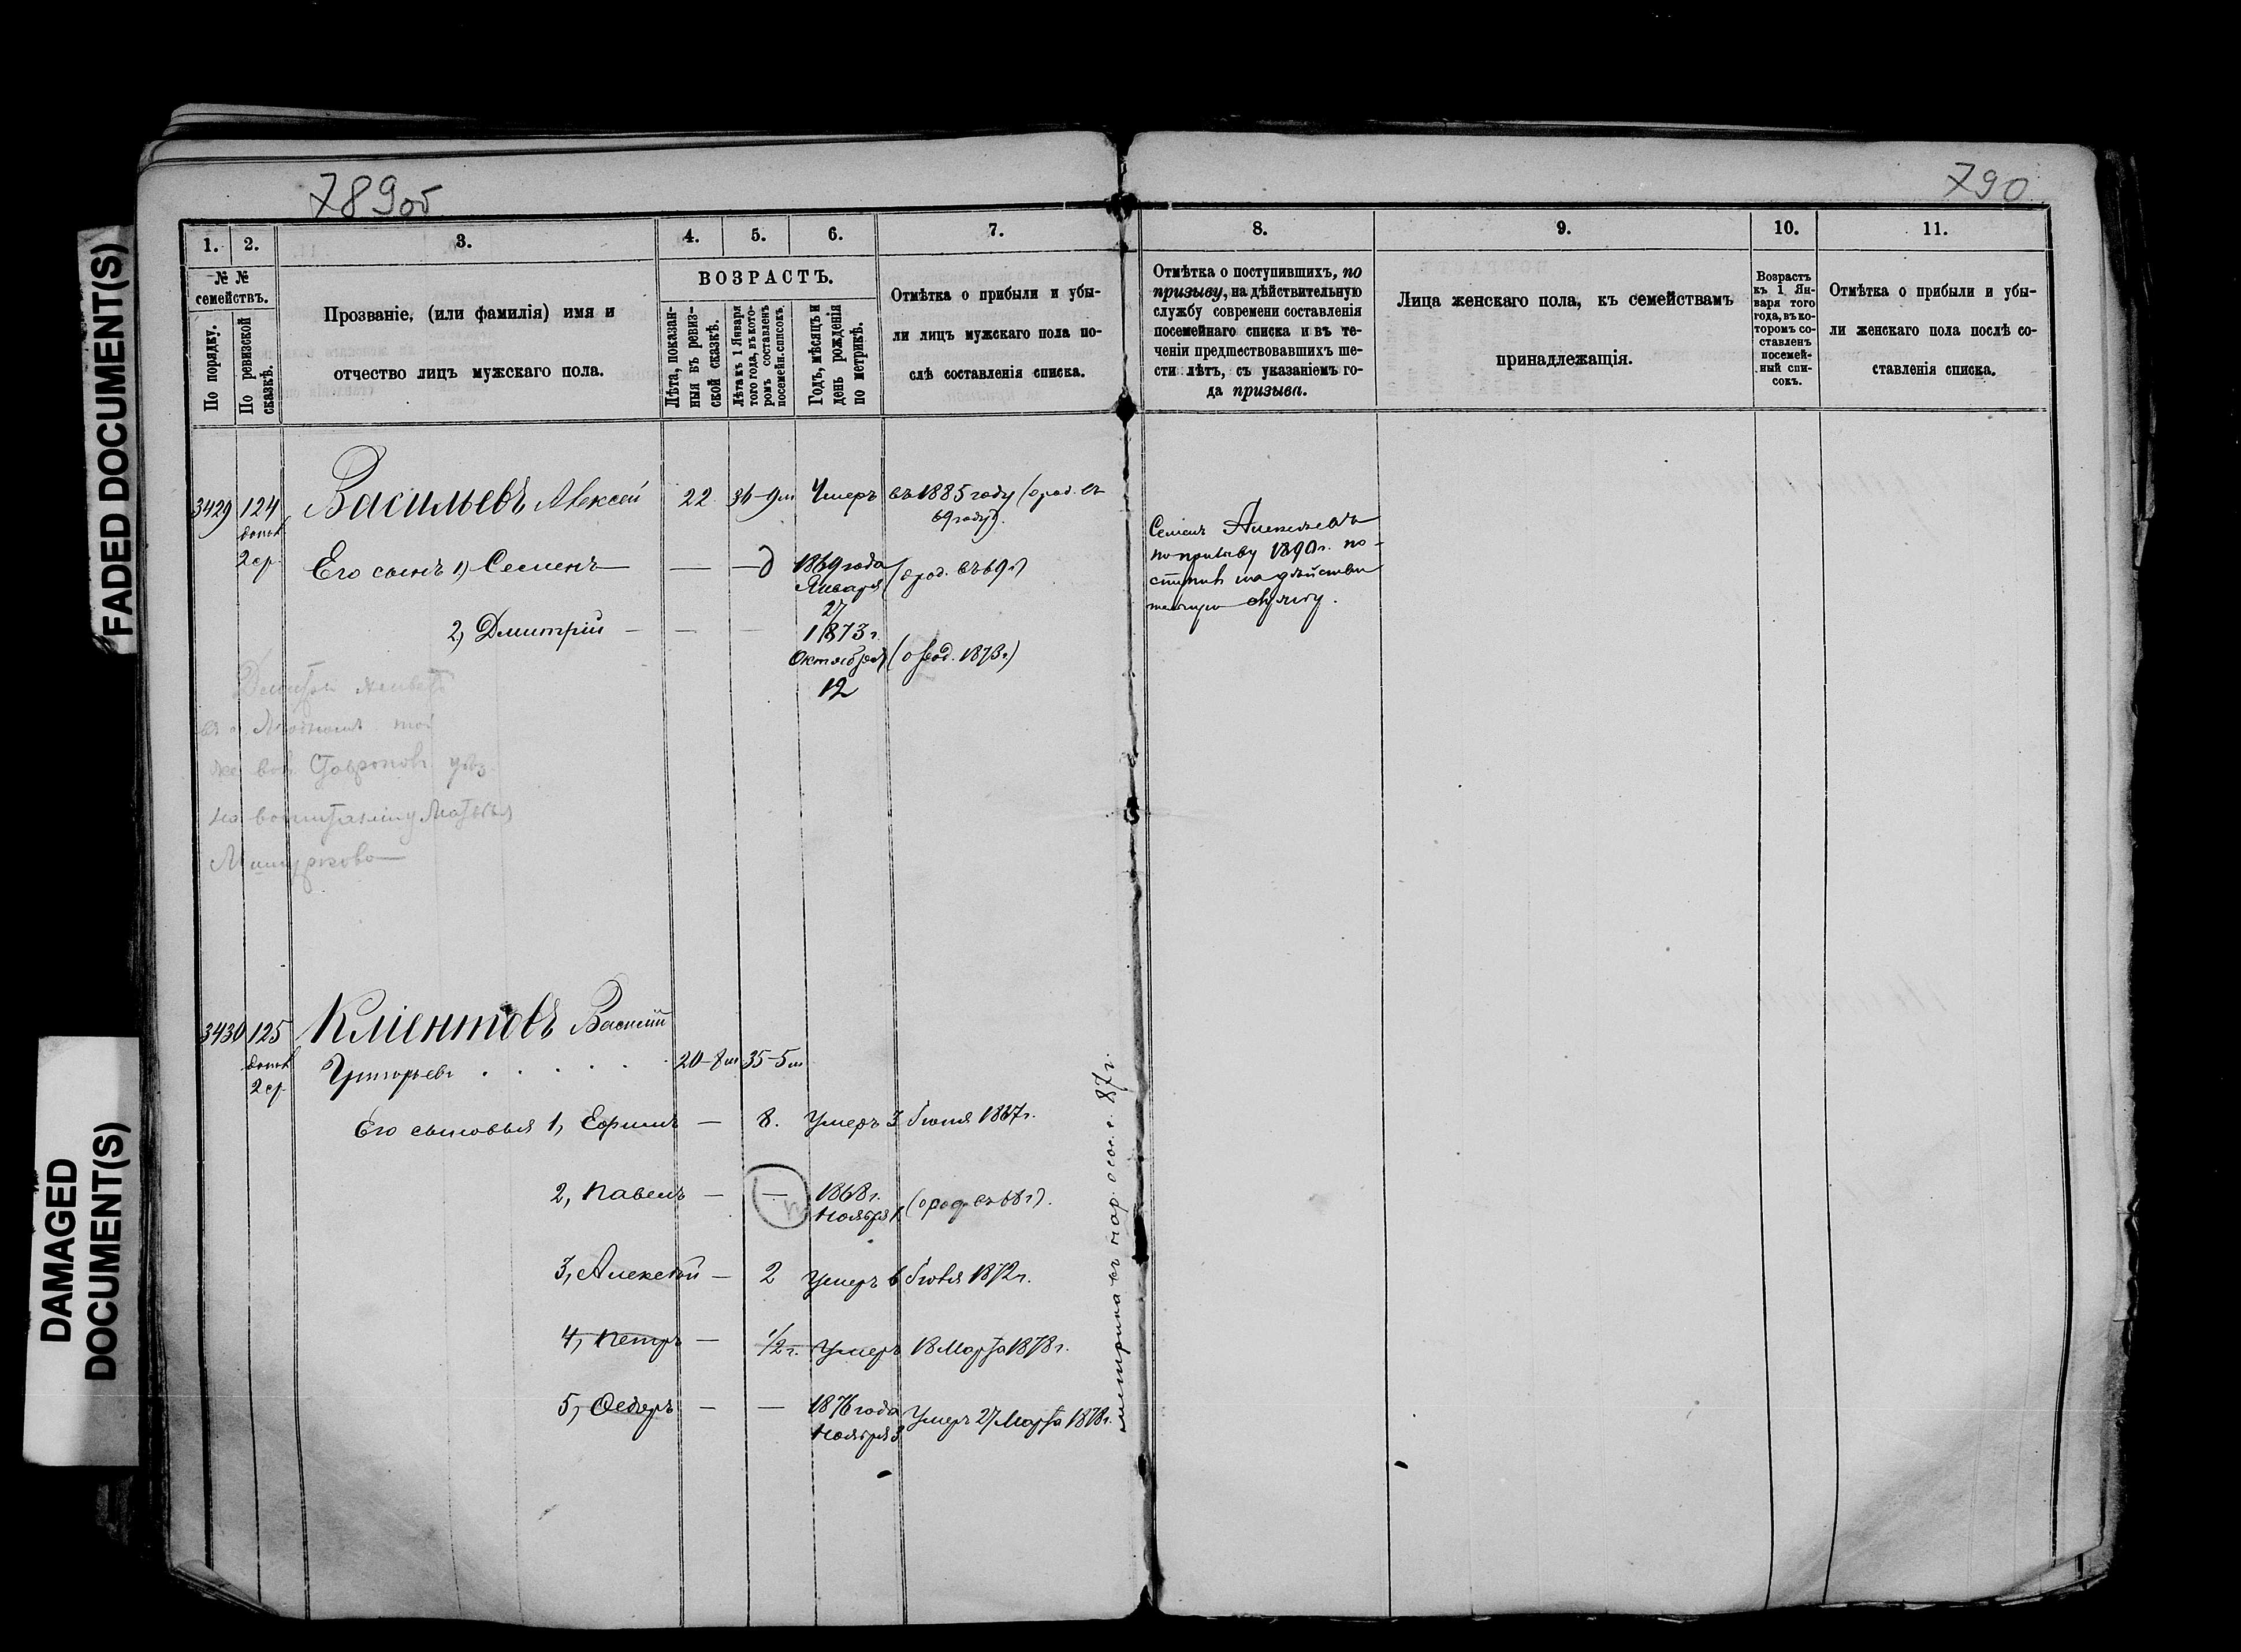 789об
790
FADED DOCUMENT(S)
DAMAGED
DOCUMENT(S)
1.
2.
3.
4.
5.
6.
7.
8.
9.
10.
11.
№ №
семействъ.
По порядку.
По ревизской
сказкѣ.
Прозваніе, (или фамилія) имя и
отчество лицъ мужскаго пола.
ВОЗРАСТЪ.
Лѣта, показан-
ныя въ ревиз-
ской сказкѣ.
Лѣта къ 1 Января
того года, въ кото-
ромъ составленъ
посемейн. списокъ.
Годъ, мѣсяцъ и
день рожденія
по метрикѣ.
Отмѣтка о прибыли и убы-
ли лицъ мужскаго пола по-
слѣ составленія списка.
Отмѣтка о поступившихъ, по
призыву, на дѣйствительную
службу современи составленія
посемейнаго списка и въ те-
ченіи предшествовавшихъ ше-
сти лѣтъ, съ указаніемъ го-
да призыва.
Лица женскаго пола, къ семействамъ
принадлежащія.
Возрастъ
къ 1 Ян-
варя того
года, въ ко-
торомъ со-
ставленъ
посемей-
ный спи-
сокъ.
Отмѣтка о прибыли и убы-
ли женскаго пола послѣ со-
ставленія списка.
3429 124 Васильевъ Алексей 22 36-9м Умеръ въ 1885 году (о род. въ
69 году).
2 ср.
Его сынъ 1) Семенъ — — 1869 года (о род. въ 69 г)
Января
27
2) Дмитрій — — — 1873 г.
Октября (о род. 1873 г)
12
Семенъ Алексеевъ
по призыву 1890 г. по-
ступилъ на дѣйстви
тельную службу.
Дмитрій живетъ
той
же вол. Ставропол. уѣз.
на воспитаніи у Матвѣя
3430 125 Климентовъ Василій
Григорьевъ 20-8м 35-5м
2 ср.
Его сыновья 1, Ефимъ — 8. Умеръ 3 Іюня 1867 г.
2, Павелъ — — 1868 г.
Ноября 1. (о род. въ 68 г).
3, Алексѣй — 2 Умеръ 6 Іюля 1872 г.
4, Петръ — 1/2 г. Умеръ 18 Марта 1878 г.
5, Федоръ — — 1876 года
Ноября 3 Умеръ 27 Марта 1878 г.
метрика въ 87 г.